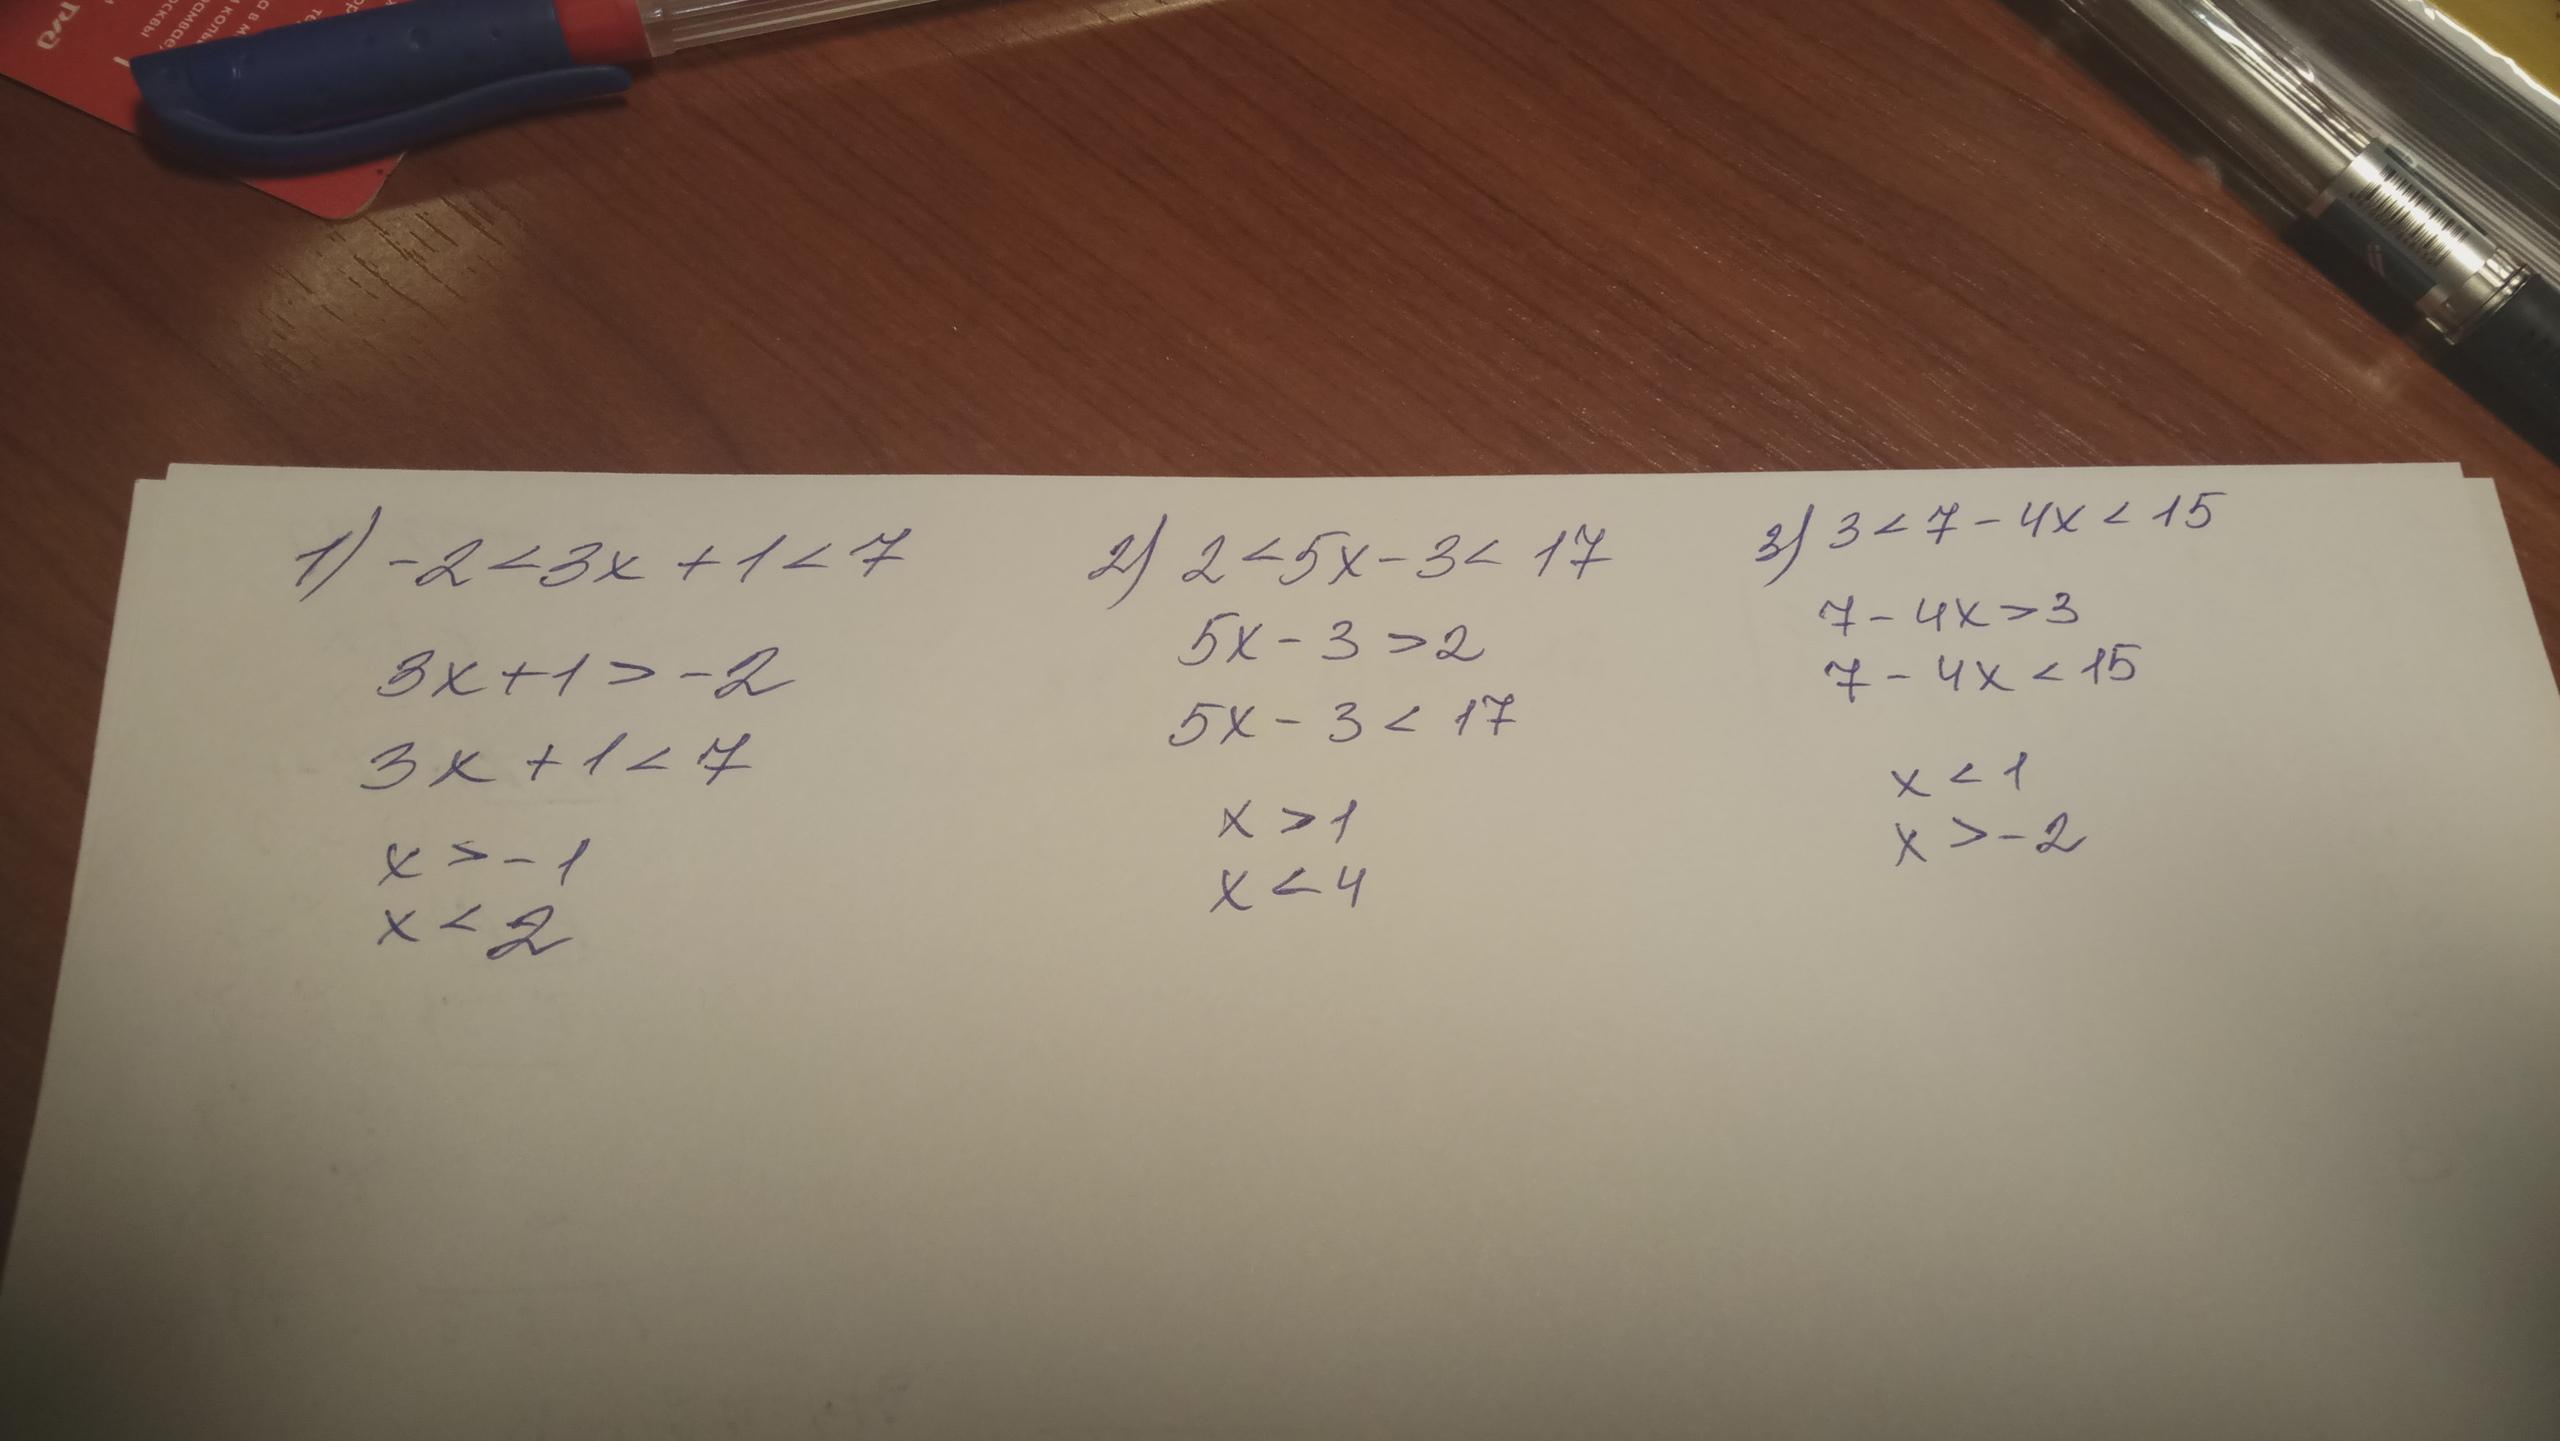 1) -2<3x+1<7
3x+1>-2
3x+1<7
x>-1
x<2
2) 2<5x-3<17
5x-3>2
5x-3<17
x>1
x<4
3) 3<7-4x<15
7-4x>3
7-4x<15
x<1
x>-2